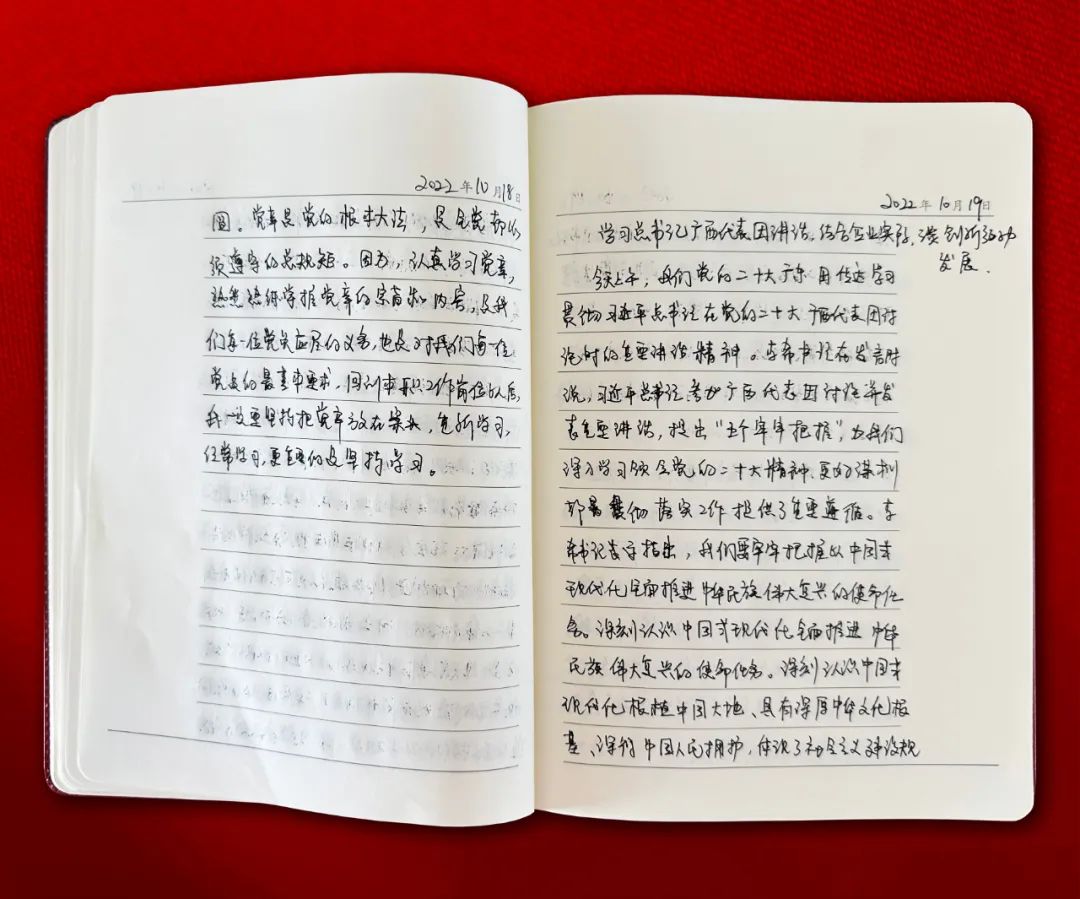 2022年10月18日
圆。党章是党的根本大法，是全党都必
须遵守的总规矩。因为，认真学习党章，
熟悉掌握党章的宗旨和内容，是我
们每一位党员应尽的义务，也是对我们每一位
党员的最基本要求，回到本职工作岗位以后，
我一定要坚持把党章放在案头，
经常学习，更重要的是坚持学习。
2022年10月19日
学习总书记广西代表团讲话，结合企业实际，谈创新驱动
发展.
今天上午，我们党的二十大广东团传达学习
贯彻习近平总书记在党的二十大广西代表团讨
论时的重要讲话精神。李希书记在发言时
说，习近平总书记参加广西代表团讨论并发
表重要讲话，提出“五个牢牢把握”，为我们
深入学习领会党的二十大精神、更好谋划
部署贯彻落实工作提供了重要遵循。李
希书记表示指出，我们要牢牢把握以中国式
现代化全面推进中华民族伟大复兴的使命任
务。深刻认识中国式现代化全面推进中华
民族伟大复兴的使命任务。深刻认识中国式
现代化根植中国大地、具有深厚中华文化根
基、深得中国人民拥护，体现了社会主义建设规